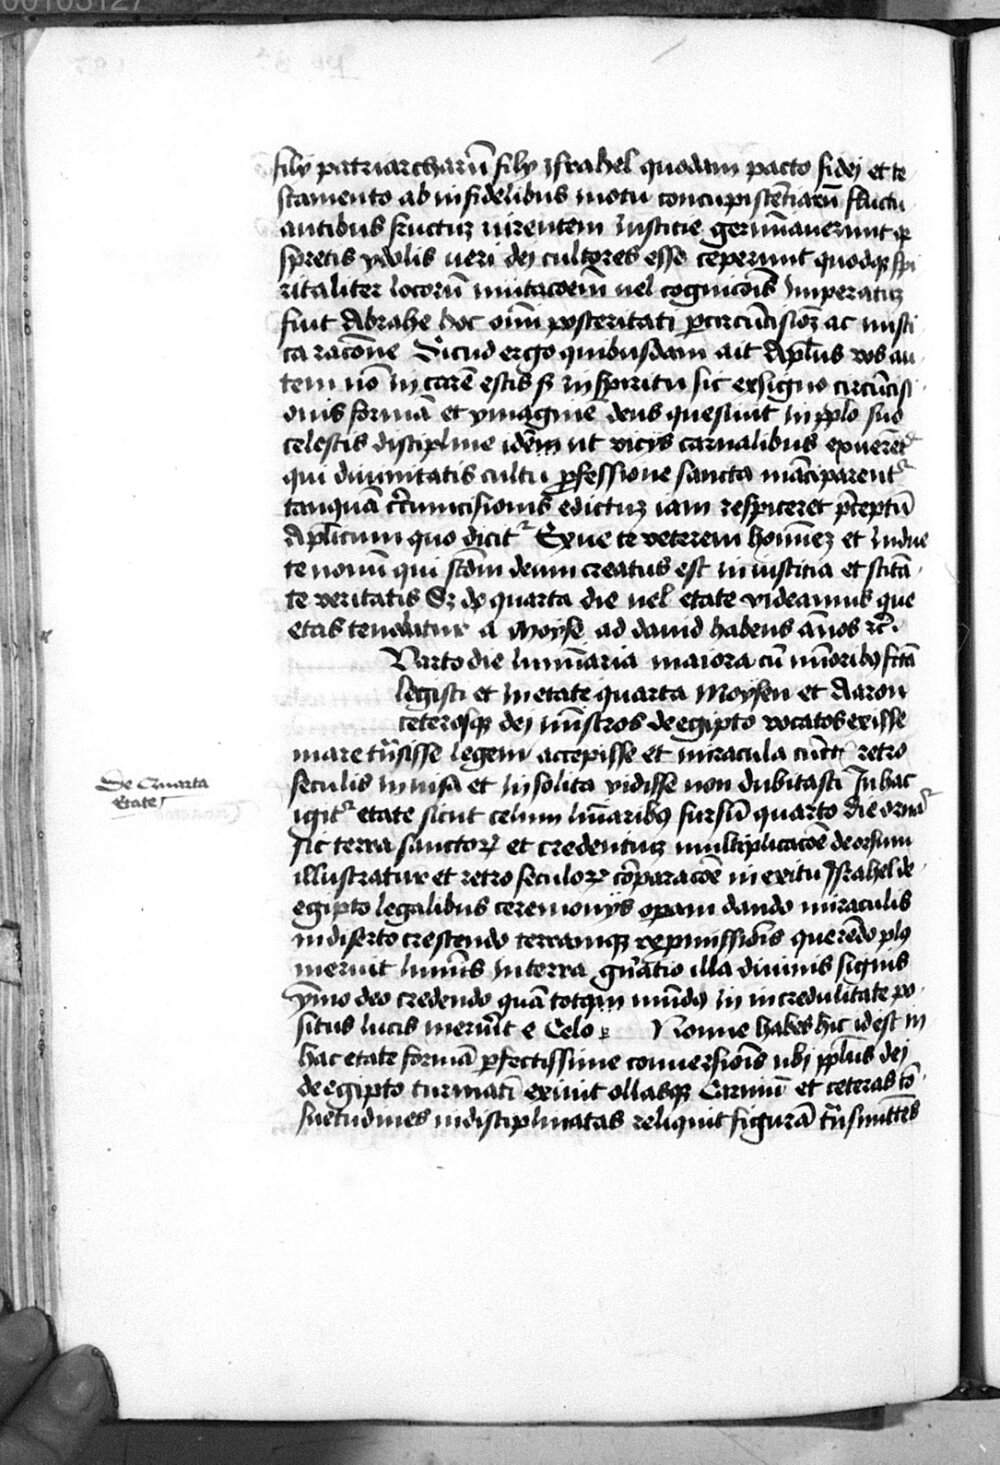 filij patriarcharū filij israhel quodam pacto fidei et te
stamento ab infidelibus motu concupiscētiarū fluctu
antibus fructuʒ uirentem Iusticie germīauerunt qʒ
spretis ydolis ueri dei cultores esse ceperunt quodqʒ spi
ritaliter locorū mutacōem uel cognicōis Imperatuʒ
fuit Abrahe hoc oīm posteritati ꝑ circūcisionʒ ac misti
ca racōne Sicud ergo quibusdam ait Apl̄us vos au
tem nō In carē estis sʒ in spiritu sic ex signo circūcisi
onis formā et ymaginē deus quesiuit In pplo suo
celestis discipline idem ut vicijs carnalibus exuerēt
qui diuinitatis cultu ꝓfessione sancta mācipparent
tanquā circumcisionis edictuʒ iam respiceret p̄ceptū
Apl̄icum quo dicit Exue te veterem homineʒ et Indue
te nouū qui scdm deum creatus est in iusticia et scita
te veritatis Sʒ de quarta die uel etate videamus que
etas tendatur a Moyse ad dauid habens ānos rc̄.
Uarto die luminaria maiora cū mīoribꝫ fctā
legisti et In etate quarta Moysen et Aaron
ceterosqʒ dei mīstros de egipto vocatos exisse
mare trāsisse legem accepisse et miracula cunct retro
seculis In uisa et In solita vidisse non dubitasti In hac
De Quarta
Etate
igit etate sicut celum lūaribꝫ sursū quarto die ornat
sic terra sanctoꝝ et credentiuʒ multiplicacōe deorsum
illustratur et retro seculoꝝ cōparacōe in exitu Israhel de
egipto legalibus ceremonijs opam dando miraculis
in diserto crescendo terramqʒ repmissiōis querēdo plꝰ
meruit luminis In terra gn̄atio illa diuinis signis
ymo deo credendo quā totqm mūdꝰ In incredulitate po
situs lucis meruit e Celo Nonne habes hic id est in
hac etate formā ꝑfectissime conuersiōis ubi pplus dei
de egipto turmati exiuit ollasqʒ Carniū et ceteras cō
suetudines indisciplinatas reliquit figurā trāsmittēs